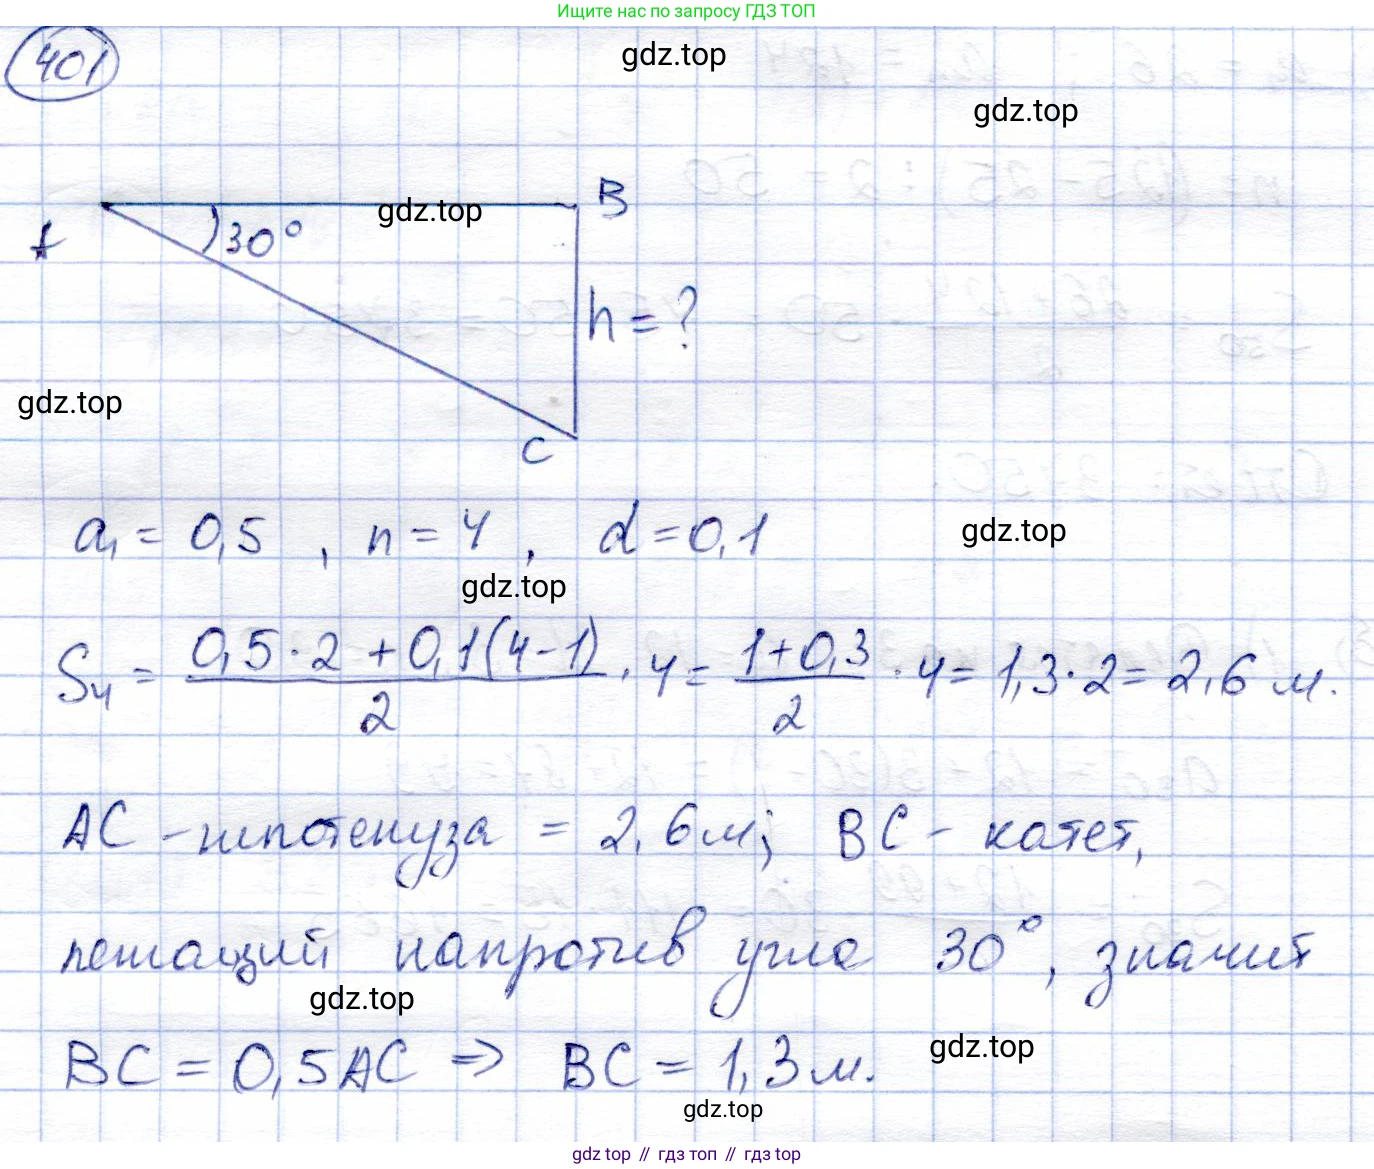 Ищите нас по запросу ГДЗ ТОП
401
gdz.top
gdz.top
A
B
gdz.top
30°
h = ?
gdz.top
C
a₁ = 0,5 , n = 4 , d = 0,1
gdz.top
gdz.top
S₄ = (0,5 · 2 + 0,1(4-1))/2 · 4 = (1+0,3)/2 · 4 = 1,3 · 2 = 2,6 м.
AC - гипотенуза = 2,6 м; BC - катет,
лежащий напротив угла 30°, значит
gdz.top
BC = 0,5AC ⇒ BC = 1,3 м.
gdz.top
gdz.top
gdz top // гдз топ // гдз top